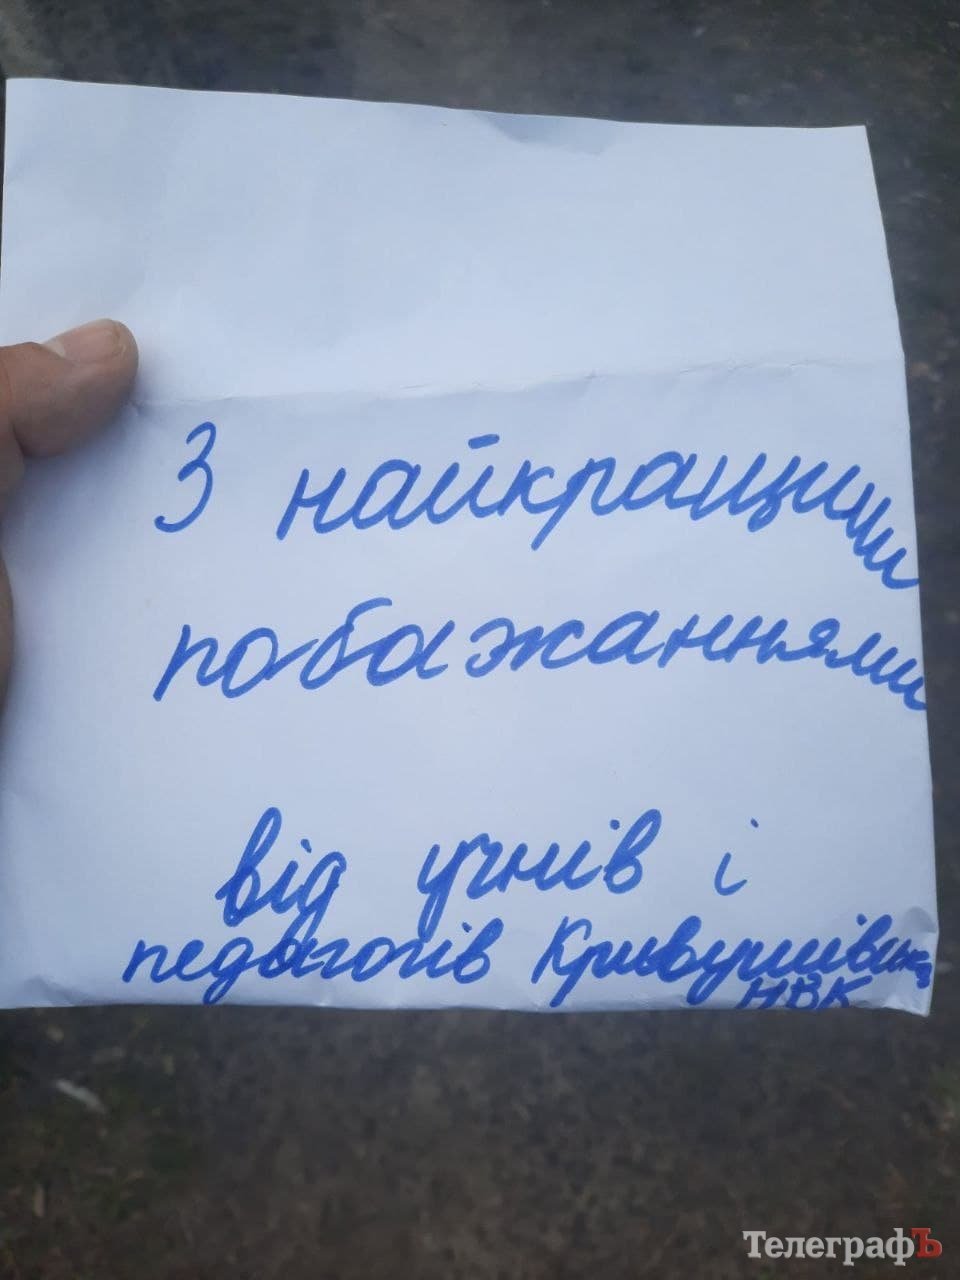 З найкращими
побажаннями
від учнів і
педагогів
НВК
ТелеграфЪ